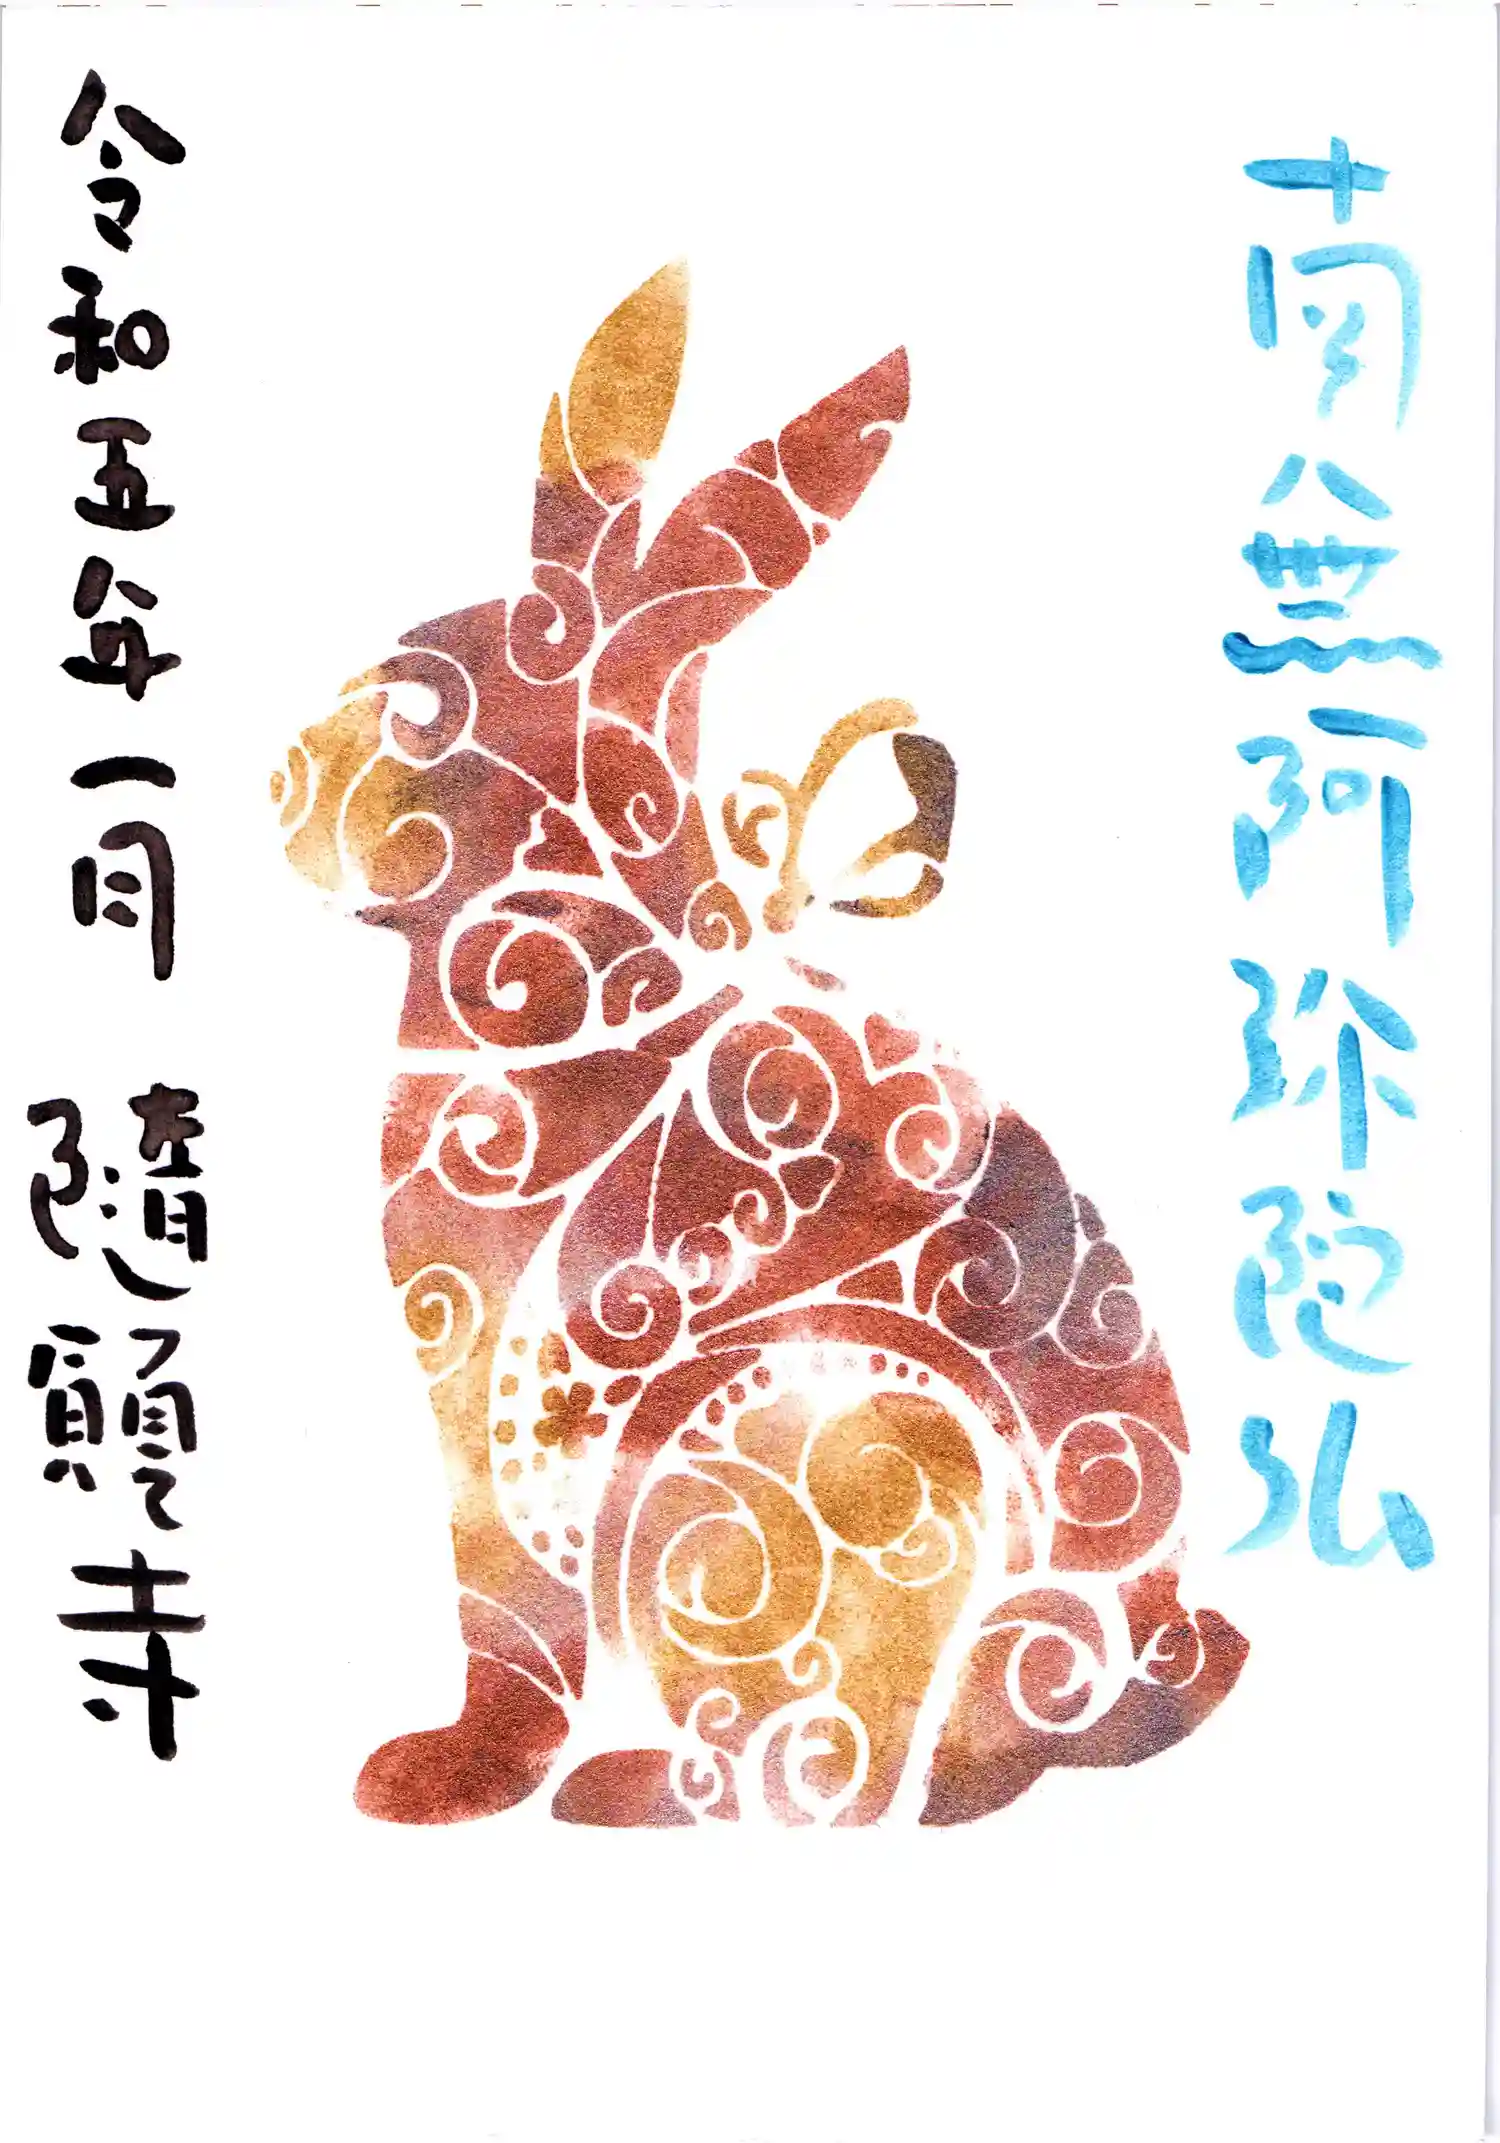 南無阿弥陀仏
令和五年一月 隨願寺